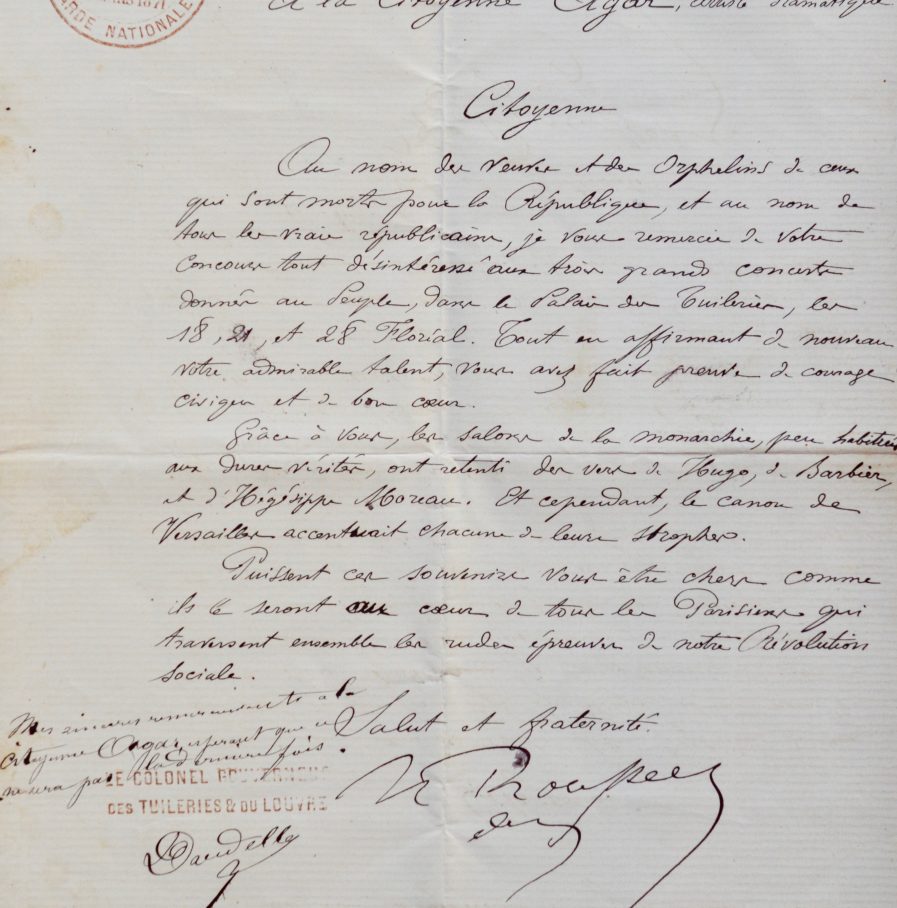 GARDE NATIONALE
A la Citoyenne Agar, artiste dramatique
Citoyenne
Au nom des Veuves et des Orphelins de ceux
qui sont morts pour la République, et au nom de
tous les vrais républicains, je vous remercie de votre
Concours tout désintéressé aux trois grands concerts
donnés au Peuple, dans le Palais des Tuileries, les
18, 21, et 28 Floréal. Tout en affirmant de nouveau
votre admirable talent, vous avez fait preuve de courage
civique et de bon cœur.
Grâce à vous, les salons de la monarchie, peu habitués
aux dures vérités, ont retenti des vers de Hugo, de Barbier,
et d'Hégésippe Moreau. Et cependant, le canon de
Versailles accentuait chacune de leurs strophes.
Puissent ces souvenirs vous être chers comme
ils le seront aux cœurs de tous les Parisiens qui
traversent ensemble les rudes épreuves de notre Révolution
sociale.
Salut et fraternité.
Mes sincères remerciements à la
citoyenne Agar, espérant que ce
ne sera pas la dernière fois.
LE COLONEL GOUVERNEUR
DES TUILERIES & DU LOUVRE
Dardelle